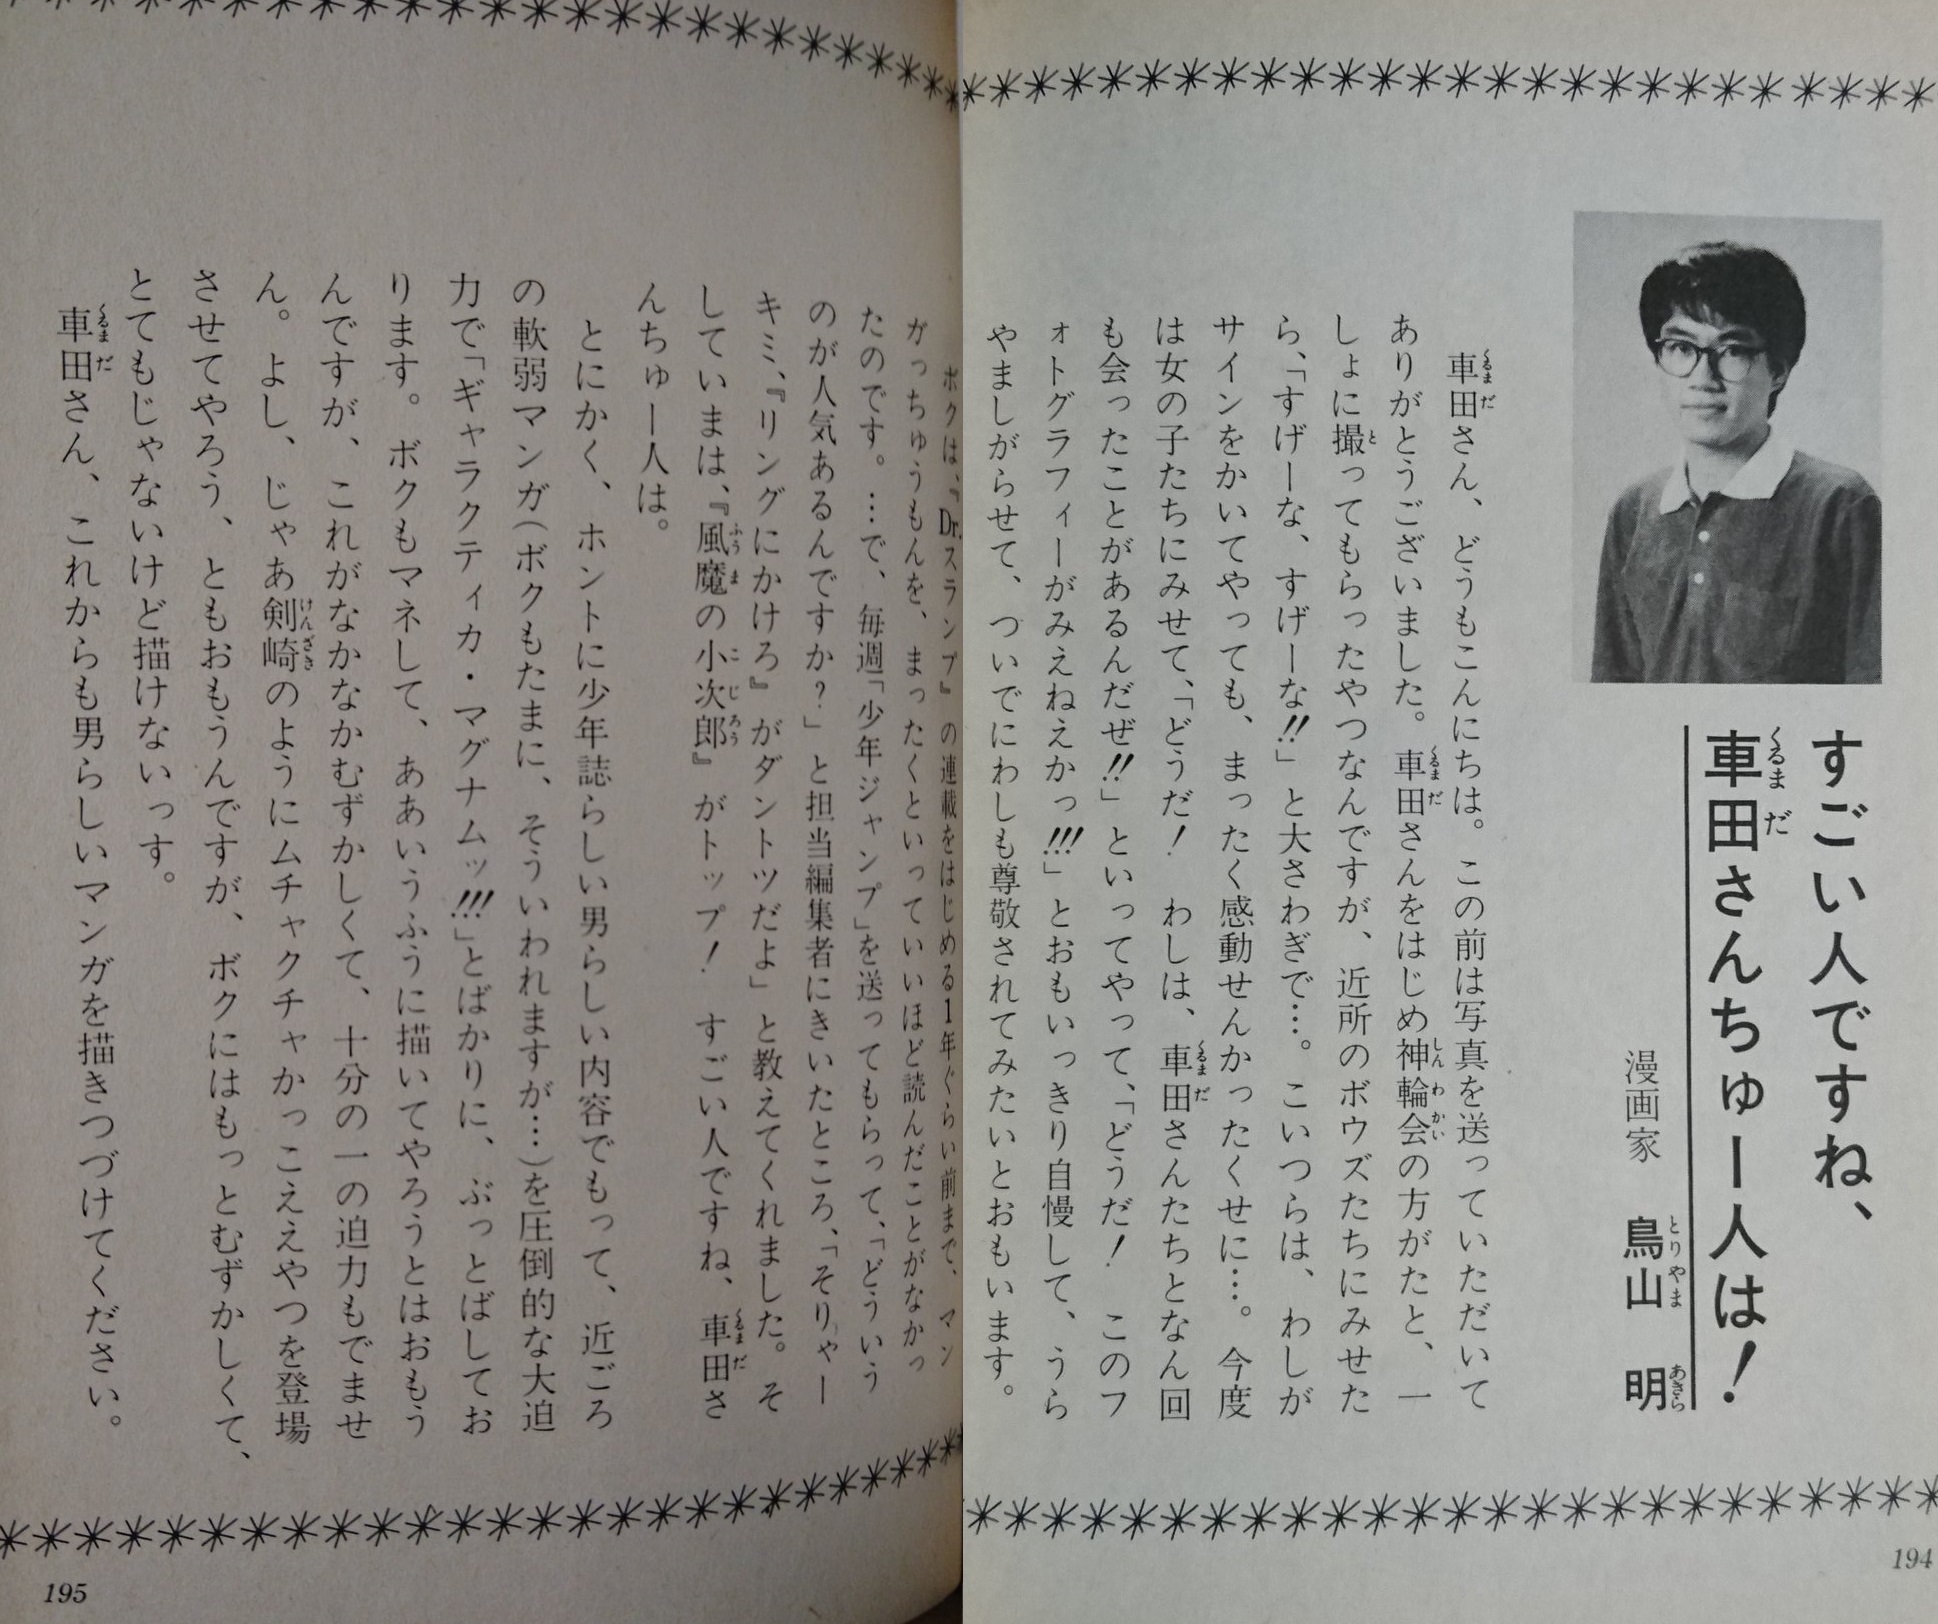 すごい人ですね、
車田さんちゅー人は！
漫画家　鳥山　明
車田さん、どうもこんにちは。この前は写真を送っていただいて
ありがとうございました。車田さんをはじめ神輪会の方がたと、一
しょに撮ってもらったやつなんですが、近所のボウズたちにみせた
ら、「すげーな、すげーな!!」と大さわぎで…。こいつらは、わしが
サインをかいてやっても、まったく感動せんかったくせに…。今度
は女の子たちにみせて、「どうだ！　わしは、車田さんたちとなん回
も会ったことがあるんだぜ!!」といってやって、「どうだ！　このフ
ォトグラフィーがみえねえかっ!!!」とおもいっきり自慢して、うら
やましがらせて、ついでにわしも尊敬されてみたいとおもいます。
194
ボクは、『Dr.スランプ』の連載をはじめる1年ぐらい前まで、マン
がっちゅうもんを、まったくといっていいほど読んだことがなかっ
たのです。…で、毎週「少年ジャンプ」を送ってもらって、「どういう
のが人気あるんですか？」と担当編集者にきいたところ、「そりゃー
キミ、『リングにかけろ』がダントツだよ」と教えてくれました。そ
していまは、『風魔の小次郎』がトップ！　すごい人ですね、車田さ
んちゅー人は。
とにかく、ホントに少年誌らしい男らしい内容でもって、近ごろ
の軟弱マンガ(ボクもたまに、そういわれますが…)を圧倒的な大迫
力で「ギャラクティカ・マグナムッ!!!」とばかりに、ぶっとばしてお
ります。ボクもマネして、ああいうふうに描いてやろうとはおもう
んですが、これがなかなかむずかしくて、十分の一の迫力もでませ
ん。よし、じゃあ剣崎のようにムチャクチャかっこええやつを登場
させてやろう、ともおもうんですが、ボクにはもっとむずかしくて、
とてもじゃないけど描けないっす。
車田さん、これからも男らしいマンガを描きつづけてください。
195